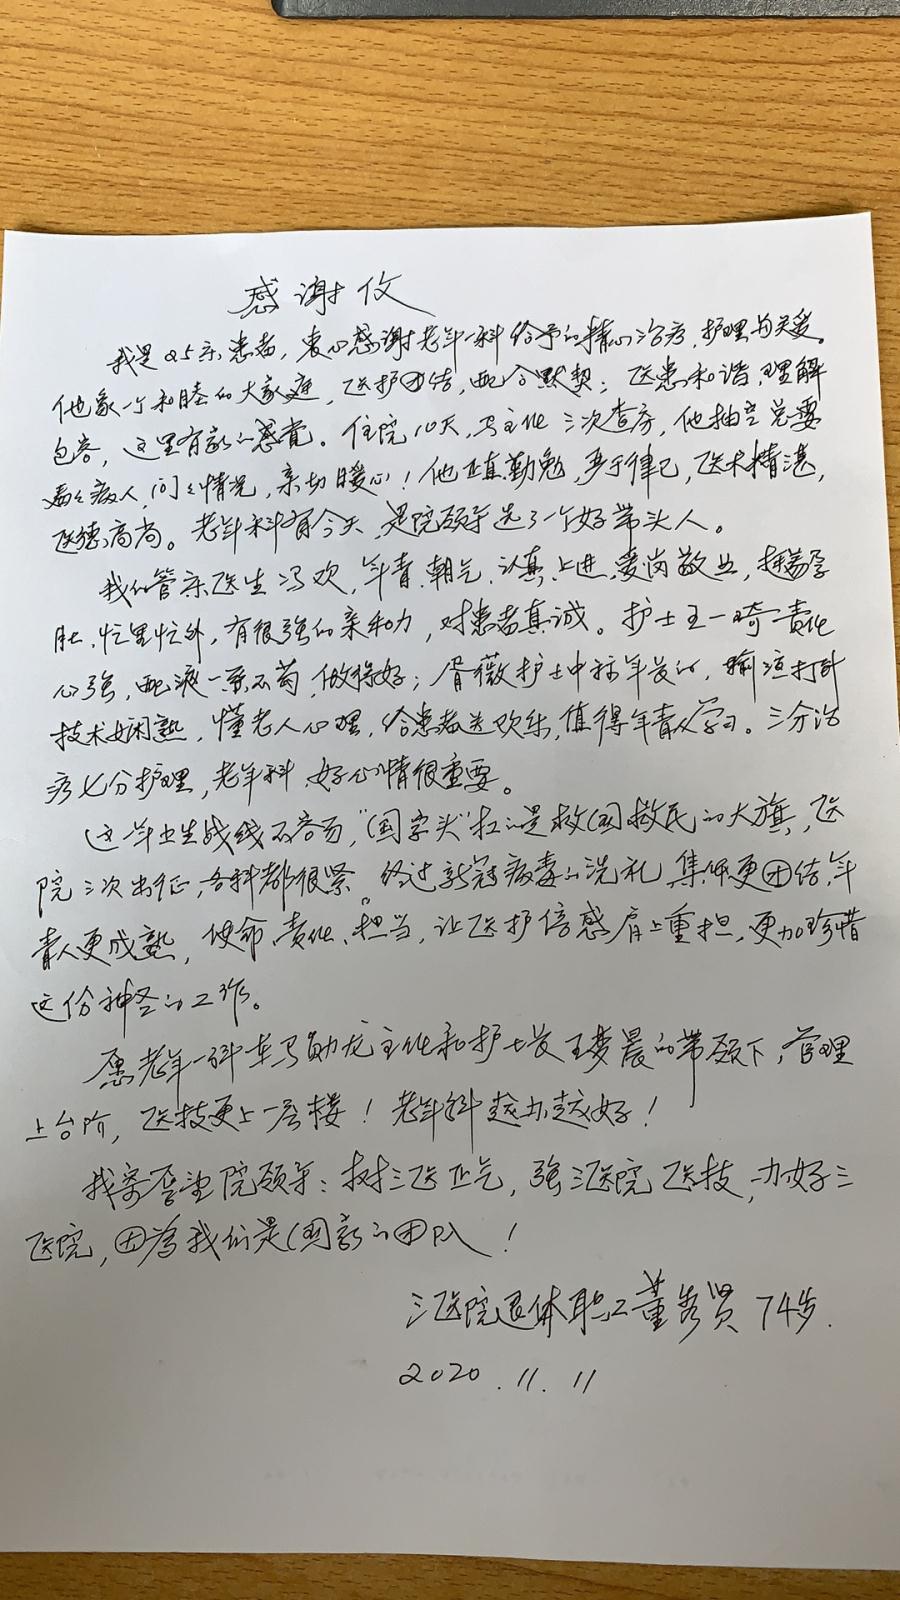 感谢信
我是25床患者,衷心感谢老年一科给予的精心治疗,护理与关爱。
他象一个和睦的大家庭,医护团结,配合默契;医患和谐,理解
包容,这里有家的感觉。住院10天,马主任三次查房,他抽空总要
看看病人,问问情况,亲切暖心!他正直勤勉,严于律己,医术精湛,
医德高尚。老年科有今天,是院领导选了一个好带头人。
我的管床医生冯欢,年青、朝气、认真、上进、爱岗敬业,挺着孕
肚,忙里忙外,有很强的亲和力,对患者真诚。护士王一琦责任
心强,配液一丝不苟,做得好;胥薇护士中标年装的,输液打针
技术娴熟,懂老人心理,给患者送欢乐,值得年青人学习。三分治
疗七分护理,老年科,好心情很重要。
这一年卫生战线不容易,“国字头”扛的是救国救民的大旗,医
院三次出征,各科都很紧。经过新冠病毒的洗礼,集体更团结,年
青人更成熟,使命、责任、担当,让医护倍感肩上重担,更加珍惜
这份神圣的工作。
愿老年一科在马勋龙主任和护士长王梦晨的带领下,管理
上台阶,医技更上一层楼!老年科越办越好!
我寄希望院领导:树三医正气,强三医院医技,办好三
医院,因为我们是国家的团队!
三医院退休职工董秀贤 74岁.
2020.11.11